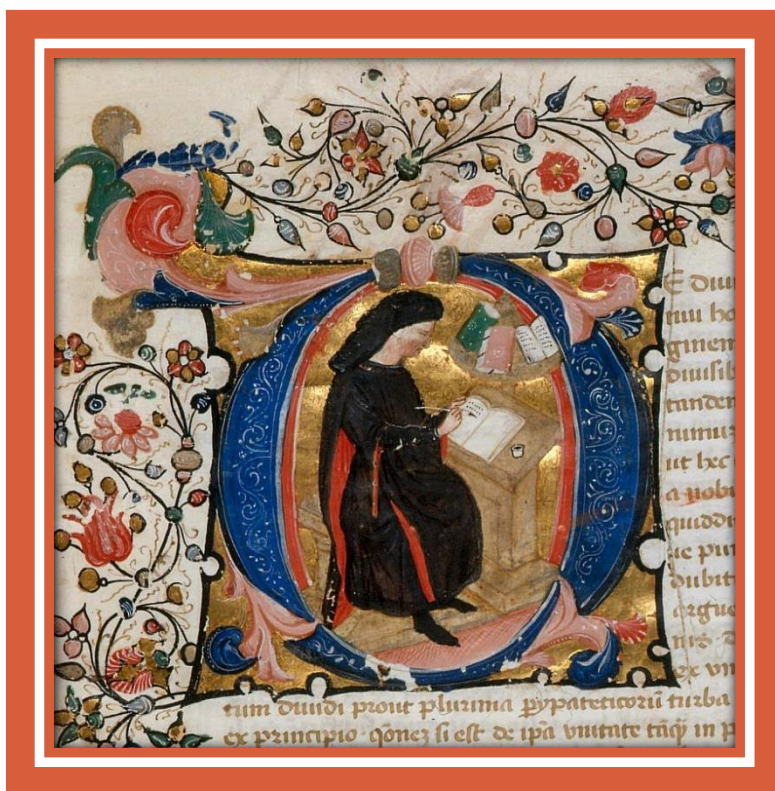 E diui
niu ho
ginem
diuisib
tanden
ut hec
a nobi
quiddi
ue pun
dubit
argue
nis. D
ex vn
tum diuidi prout plurima pypateticorū turba
ex principio q̄onez si est de ip̄a vnitate tāq̄ in p